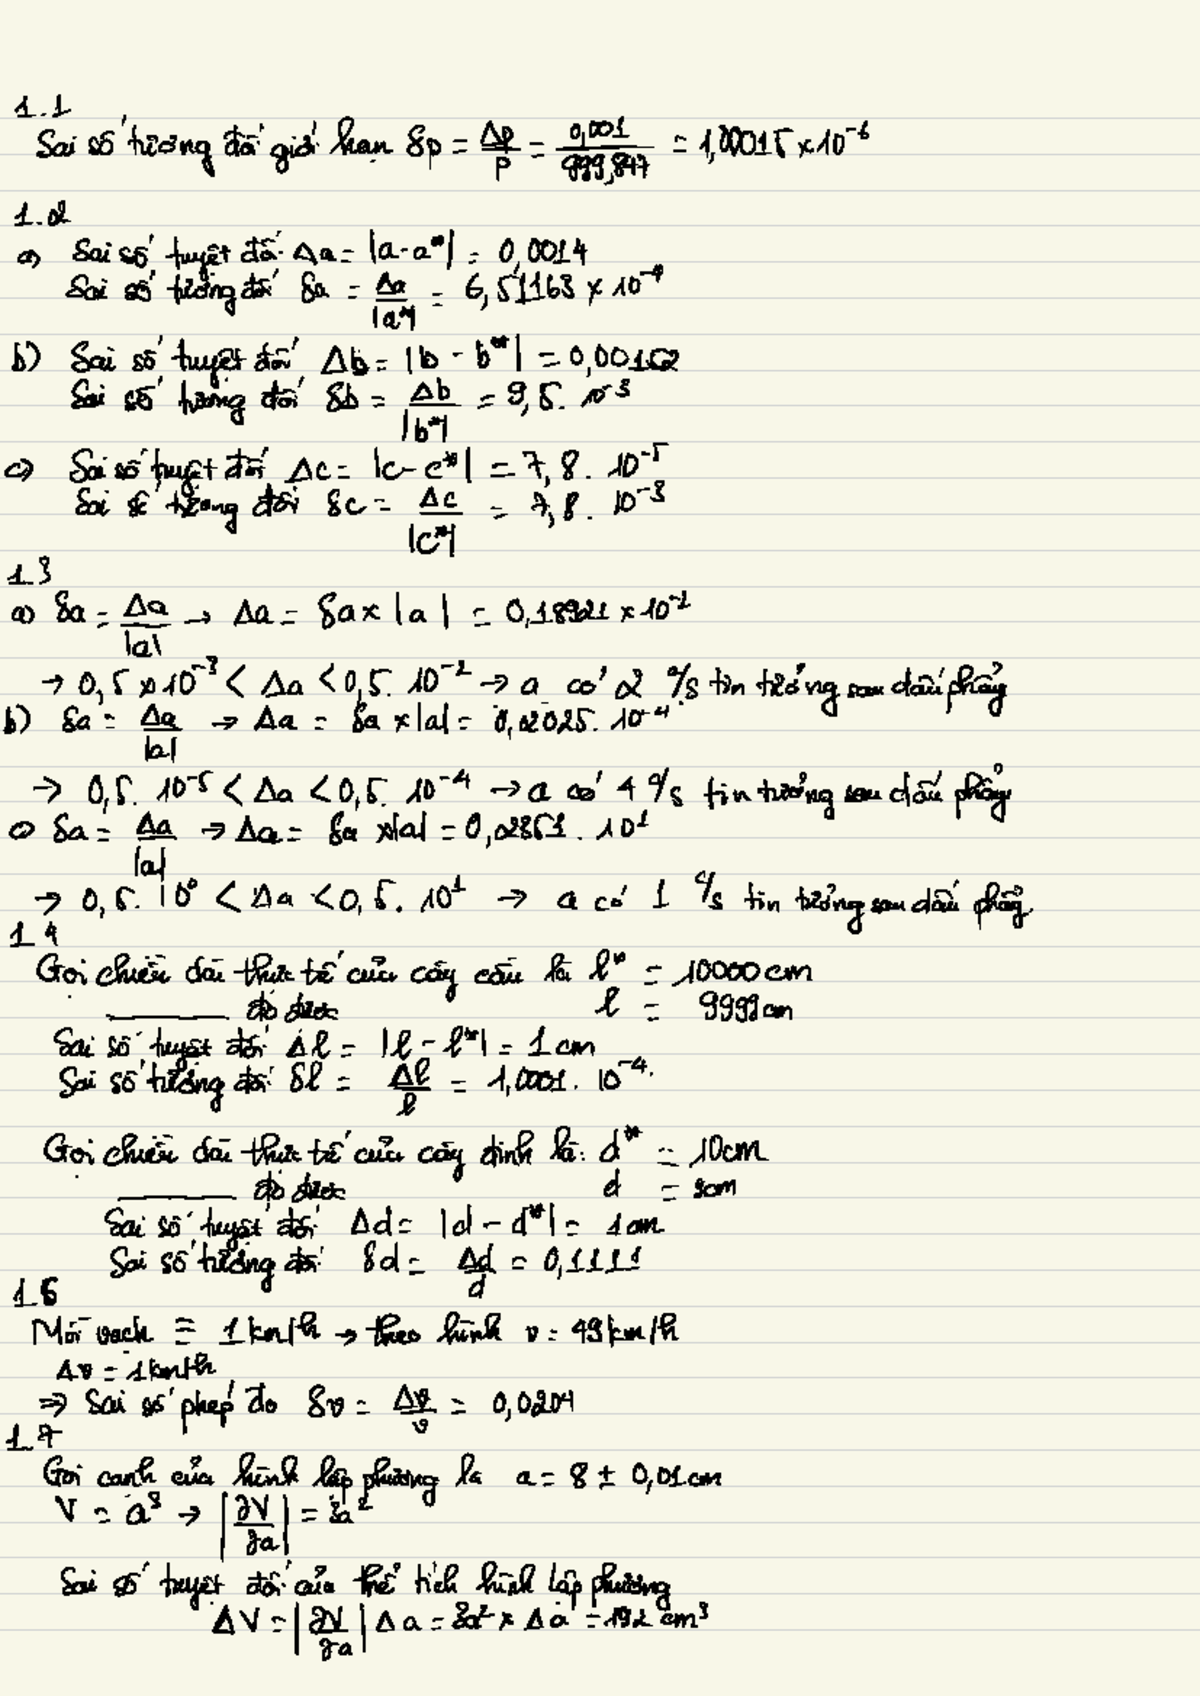 1.1
Sai số tương đối giới hạn δp = Δp/p = 0,001/999,847 = 1,00015 x 10^-6
1.2
a) Sai số tuyệt đối Δa = |a - a*| = 0,0014
Sai số tương đối δa = Δa/|a*| = 6,51163 x 10^-4
b) Sai số tuyệt đối Δb = |b - b*| = 0,00162
Sai số tương đối δb = Δb/|b*| = 9,5. 10^-3
c) Sai số tuyệt đối Δc = |c - c*| = 7,8. 10^-5
Sai số tương đối δc = Δc/|c*| = 7,8. 10^-3
1.3
a) δa = Δa/|a| → Δa = δa x |a| = 0,18921 x 10^-2
→ 0,5 x 10^-3 < Δa < 0,5. 10^-2 → a có 2 c/s tin tưởng sau dấu phẩy
b) δa = Δa/|a| → Δa = δa x |a| = 0,2025. 10^-4.
→ 0,5. 10^-5 < Δa < 0,5. 10^-4 → a có 4 c/s tin tưởng sau dấu phẩy
c) δa = Δa/|a| → Δa = δa x |a| = 0,2851. 10^1
→ 0,5. 10^0 < Δa < 0,5. 10^1 → a có 1 c/s tin tưởng sau dấu phẩy.
1.4
Gọi chiều dài thực tế của cây cầu là l* = 10000 cm
đo được l = 9999 cm
Sai số tuyệt đối Δl = |l - l*| = 1 cm
Sai số tương đối δl = Δl/l = 1,0001. 10^-4.
Gọi chiều dài thực tế của cây đinh là: d* = 10cm
đo được d = 9cm
Sai số tuyệt đối Δd = |d - d*| = 1 cm
Sai số tương đối δd = Δd/d = 0,1111
Mỗi vạch ≡ 1 km/h → theo hình v = 49 km/h
Δv = 1 km/h
⇒ Sai số phép đo δv = Δv/v = 0,0204
1.7
Gọi cạnh của hình lập phương là a = 8 ± 0,01 cm
V = a^3 → |∂V/∂a| = 3a^2
Sai số tuyệt đối của thể tích hình lập phương
ΔV = |∂V/∂a| Δa = 3a^2 x Δa = 192 cm^3